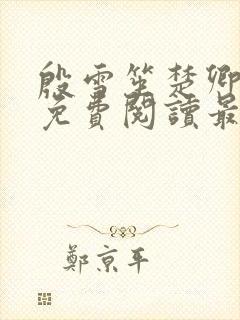 殷雪笙楚卿
免費閱讀最
鄭京平